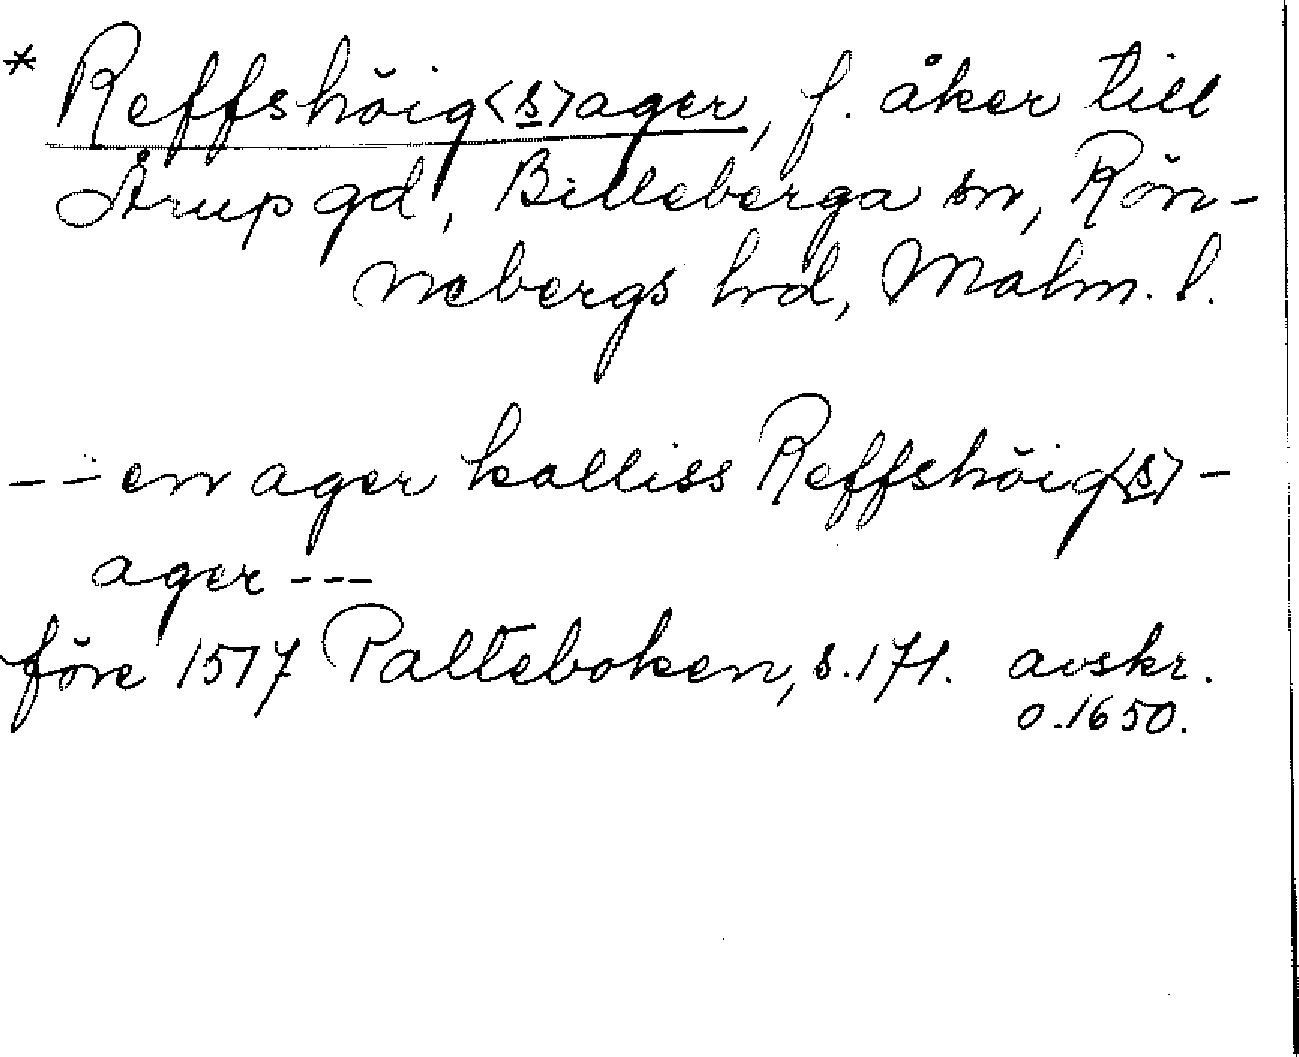 * Reffshöig<s>ager, f. åker till
Årup gd, Billeberga sn, Rön-
nebergs hrd, Malm. l.
--- en ager kalliss Reffshöig<s>-
ager ---
före 1517 Palteboken, s. 171. avskr.
o. 1650.